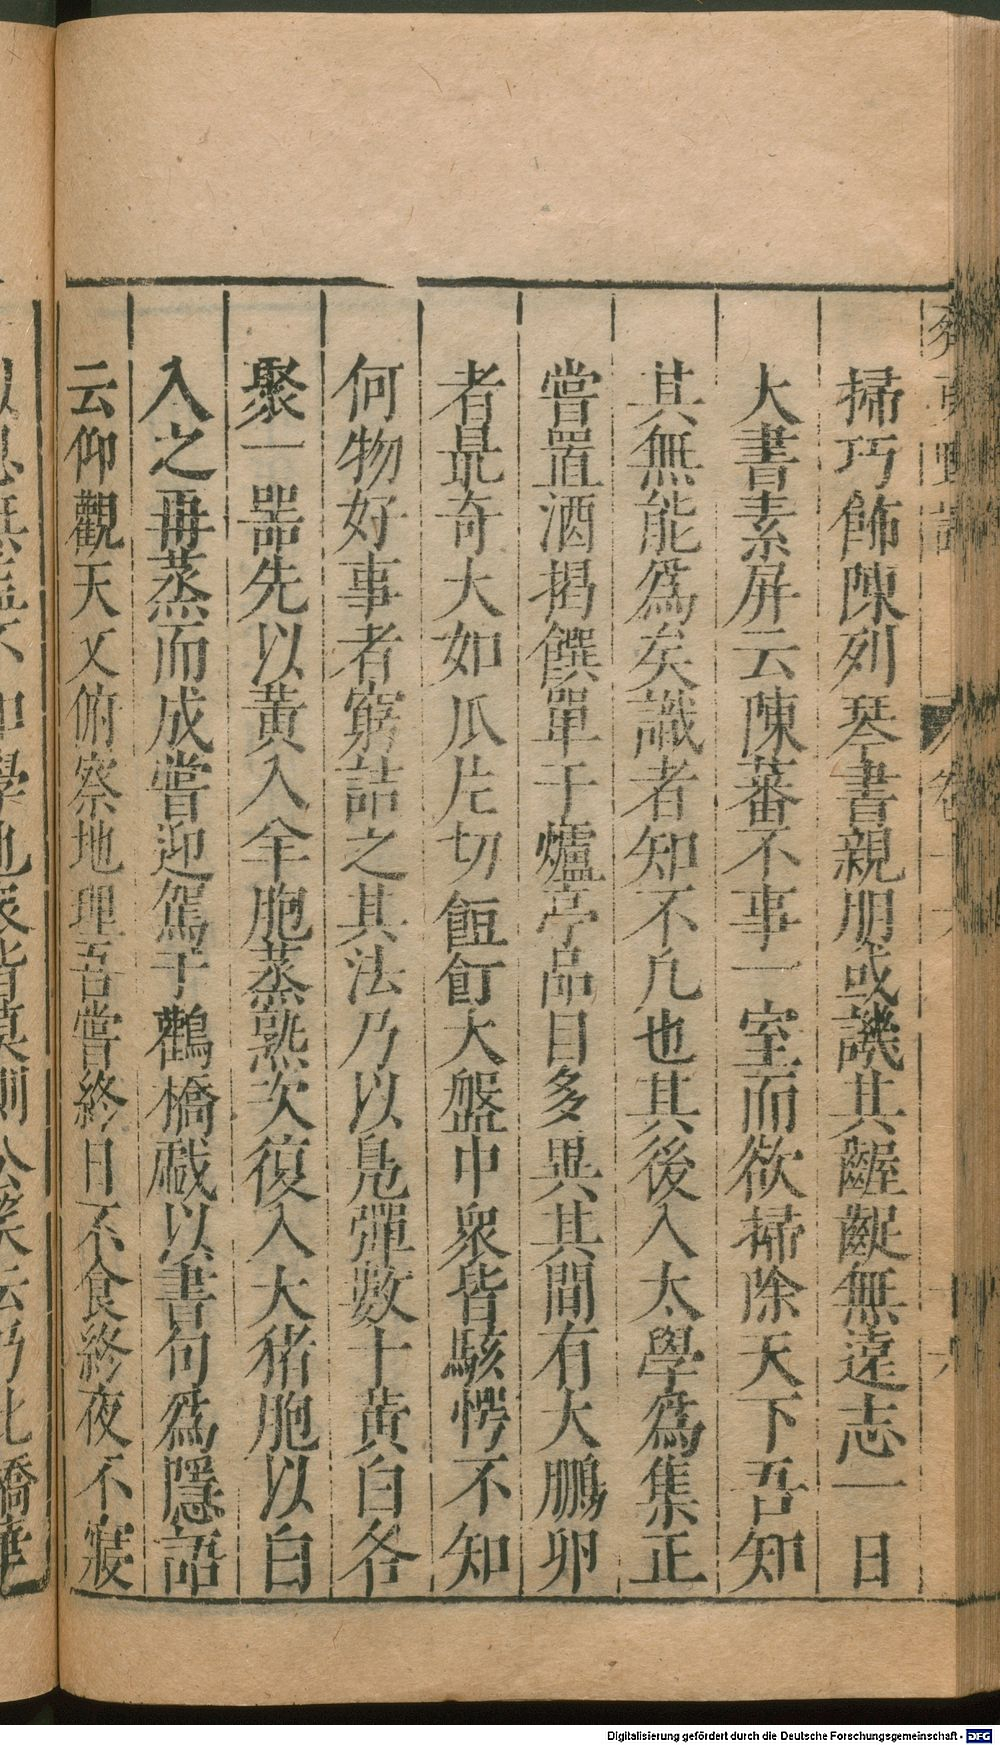 掃巧飾陳列琴書親朋或譏其齷齪無遠志一日
大書素屏云陳蕃不事一室而欲掃除天下吾知
其無能爲矣識者知不凡也其後入太學爲集正
嘗置酒揭饌單于爐亭品目多異其間有大鵬卵
者最奇大如瓜片切飣大盤中衆皆駭愕不知
何物好事者窮詰之其法乃以鳬彈數十黃白各
聚一器先以黃入羊胞蒸熟次復入大猪胞以白
入之再蒸而成嘗迎駕于鸛橋戱以書句爲隱語
云仰觀天文俯察地理吾嘗終日不食終夜不寢
Digitalisierung gefördert durch die Deutsche Forschungsgemeinschaft - DFG